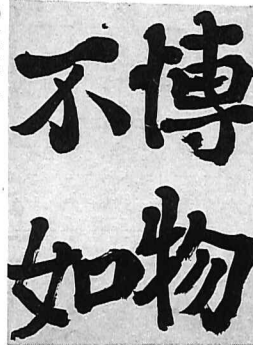 博物
不如